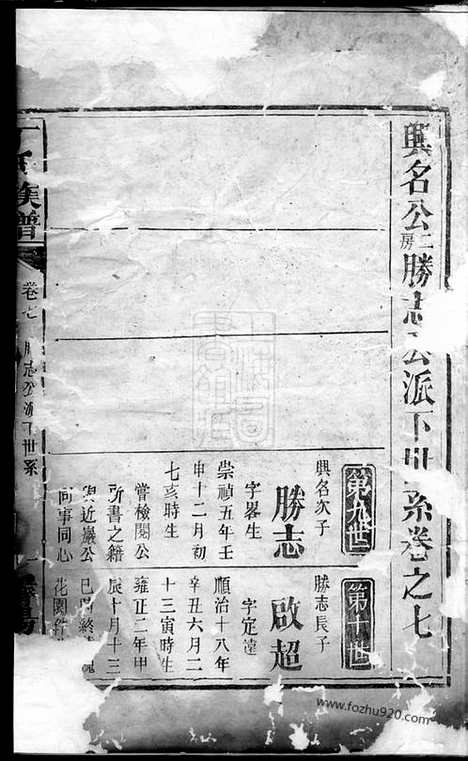 興名公二房勝志公派下世系卷之七
第九世
興名次子
勝志
字畧生
崇禎五年壬
申十二月初
七亥時生
嘗檢閱公
所書之籍
與近巖公
同事同心
第十世
勝志長子
啟超
字定遠
順治十八年
辛丑六月二
十三寅時生
雍正二年甲
辰十月十三
巳酉終
花園
族譜
卷七
勝志公派下世系
www.fozhu920.com